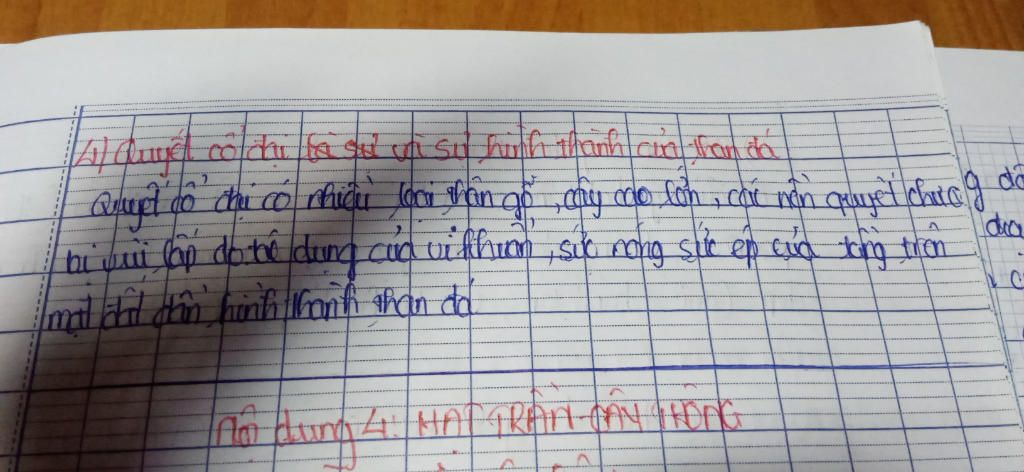 4) Quyết cổ đại và sự hình thành của than đá
Quyết cổ đại có nhiều loại thân gỗ, cây cao lớn, các nền quyết
bị vùi lấp do tác dụng của vi khuẩn, sức nóng sức ép của tầng trên
mặt đất dần hình thành than đá
Nội dung 4: HẠT TRẦN-CÂY THÔNG